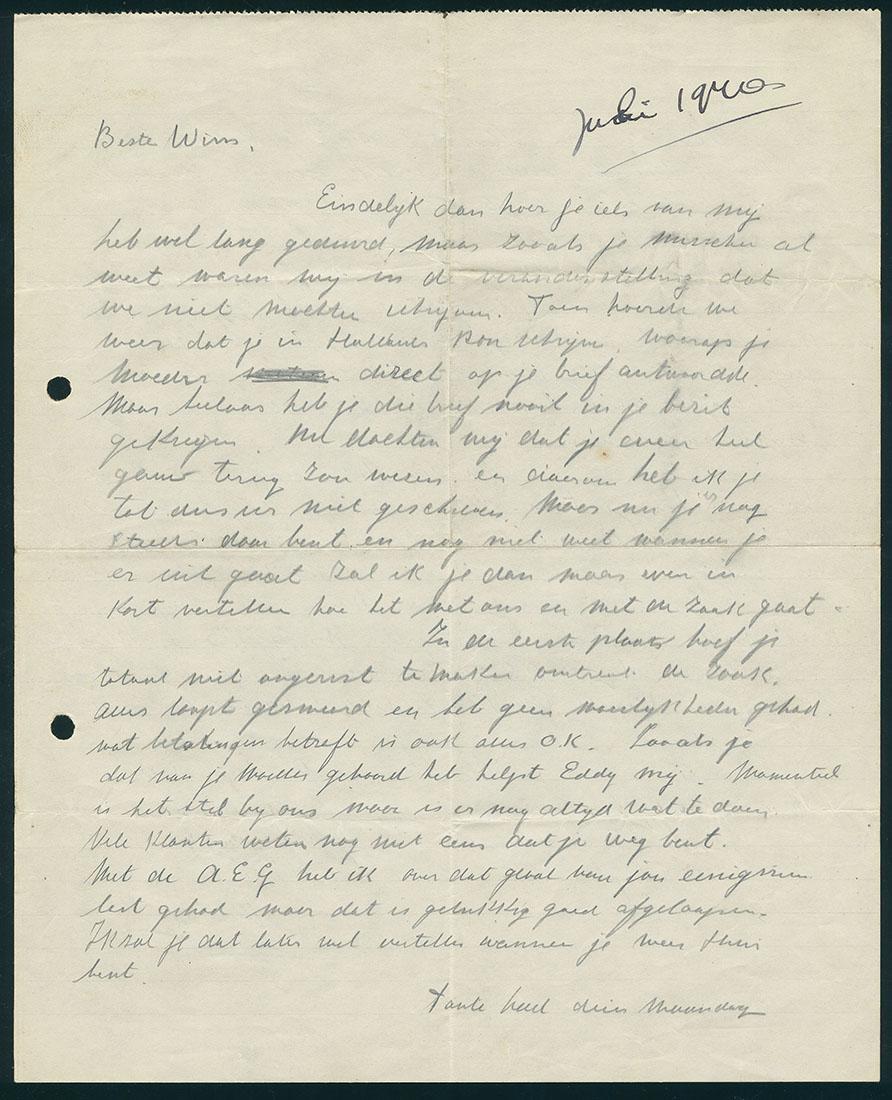 Juli 1940
Beste Wim,
Eindelijk dan hoor je iets van mij
heb wel lang geduurd, maar zooals je misschien al
weet waren wij in de veronderstelling dat
we niet mochten schrijven. Toen hoorde we
weer dat je in Hollands kon schrijven, waarop je
Moeder direct op je brief antwoordde.
Maar helaas heb je die brief nooit in je bezit
gekregen. Nu dachten wij dat je weer heel
gauw terug zou wezen en daarom heb ik je
tot dusver niet geschreven. Maar nu je nog
steeds daar bent en nog niet weet wanneer je
er uit gaat zal ik je dan maar even in
kort vertellen hoe het met ons en met de zaak gaat.
In de eerste plaats hoef je
totaal niet ongerust te maken omtrent de zaak.
Alles loopt gesmeerd en heb geen moeilijkheden gehad.
wat betalingen betreft is ook alles O.K. Zooals je
dat van je Moeder gehoord heb helpt Eddy mij. Momenteel
is het stil bij ons maar is er nog altijd wat te doen.
Vele klanten weten nog niet eens dat je weg bent.
Met de A.E.G heb ik over dat geval van jou eenigszins
last gehad maar dat is gelukkig goed afgeloopen.
Ik zal je dat later wel vertellen wanneer je weer thuis
bent
Tante heel